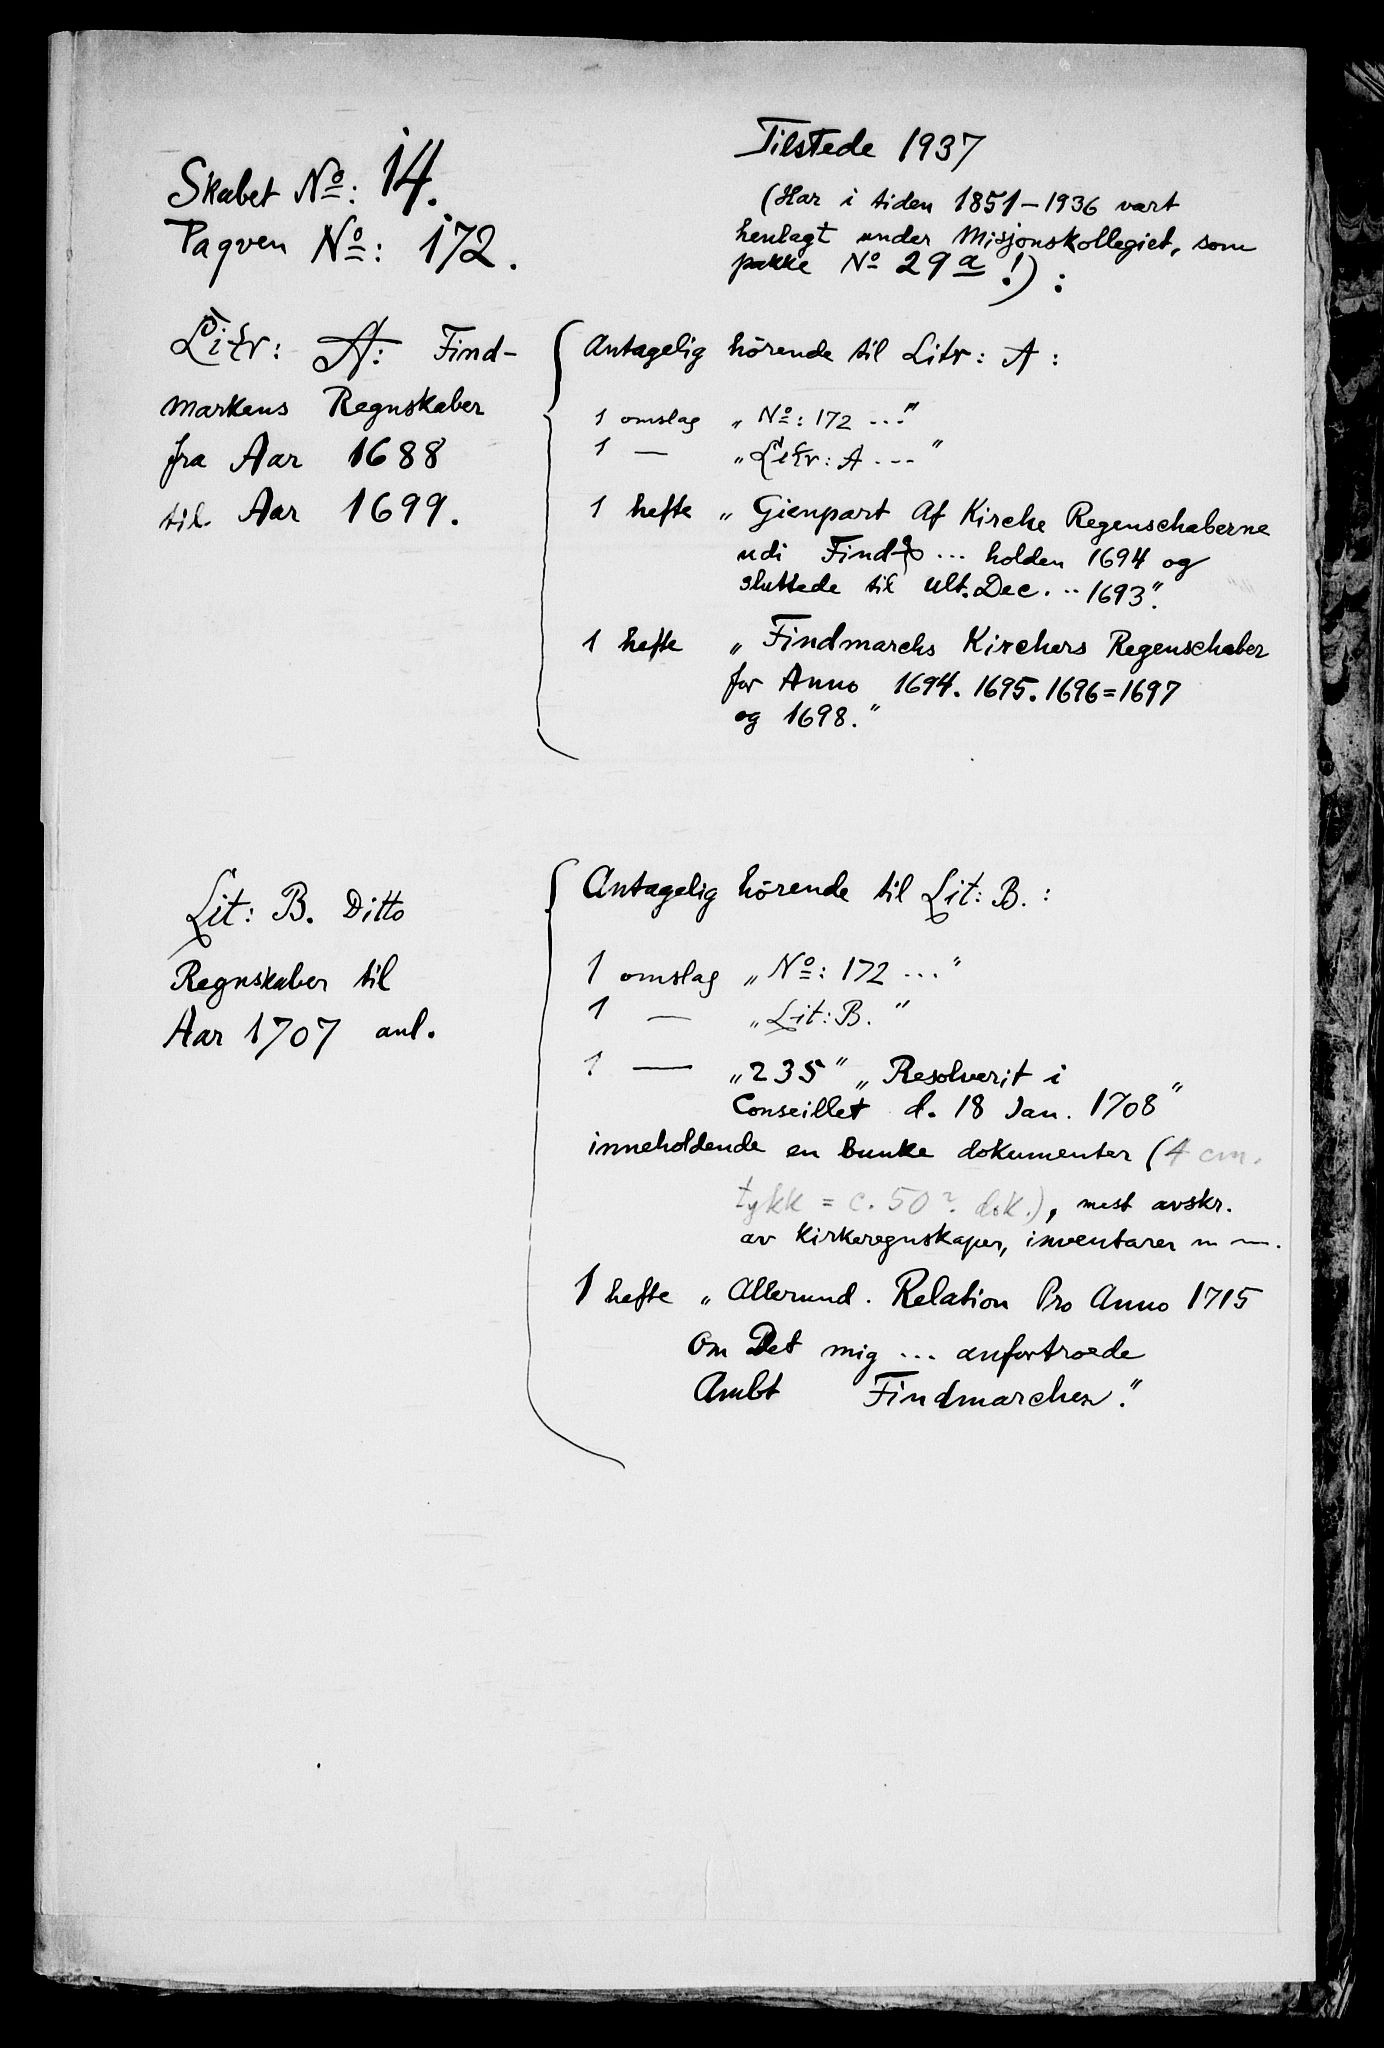 Skabet No: 14.
Paqven No: 172.
Tilstede 1937
(Har i tiden 1851–1936 vært
henlagt under Misjonskollegiet, som
pakke No 29a!) :
Litr: A: Find-
markens Regnskaber
fra Aar 1688
til Aar 1699.
Antagelig hörende til Litr: A :
1 omslag „No: 172 ..."
1 — „Litr: A ..."
1 hefte „Gienpart Af Kirche Regenschaberne
udi ... holden 1694 og
sluttede til Ult. Dec. .. 1693".
1 hefte „Findmarchs Kirchers Regenschaber
for Anno 1694. 1695. 1696=1697
og 1698."
Lit: B. Ditto
Regnskaber til
Aar 1707 anl.
Antagelig hörende til Lit: B. :
1 omslag „No: 172 ..."
1 — „Lit: B."
1 — „235" „Resolverit i
Conseillet d. 18 Jan. 1708"
inneholdende en bunke dokumenter (4 cm.
tykk = c. 50? dok.), mest avskr.
av kirkeregnskaper, inventarer m m.
1 hefte „Allerund. Relation Pro Anno 1715
Om Det mig ... anfortroede
Ambt Findmarchen."